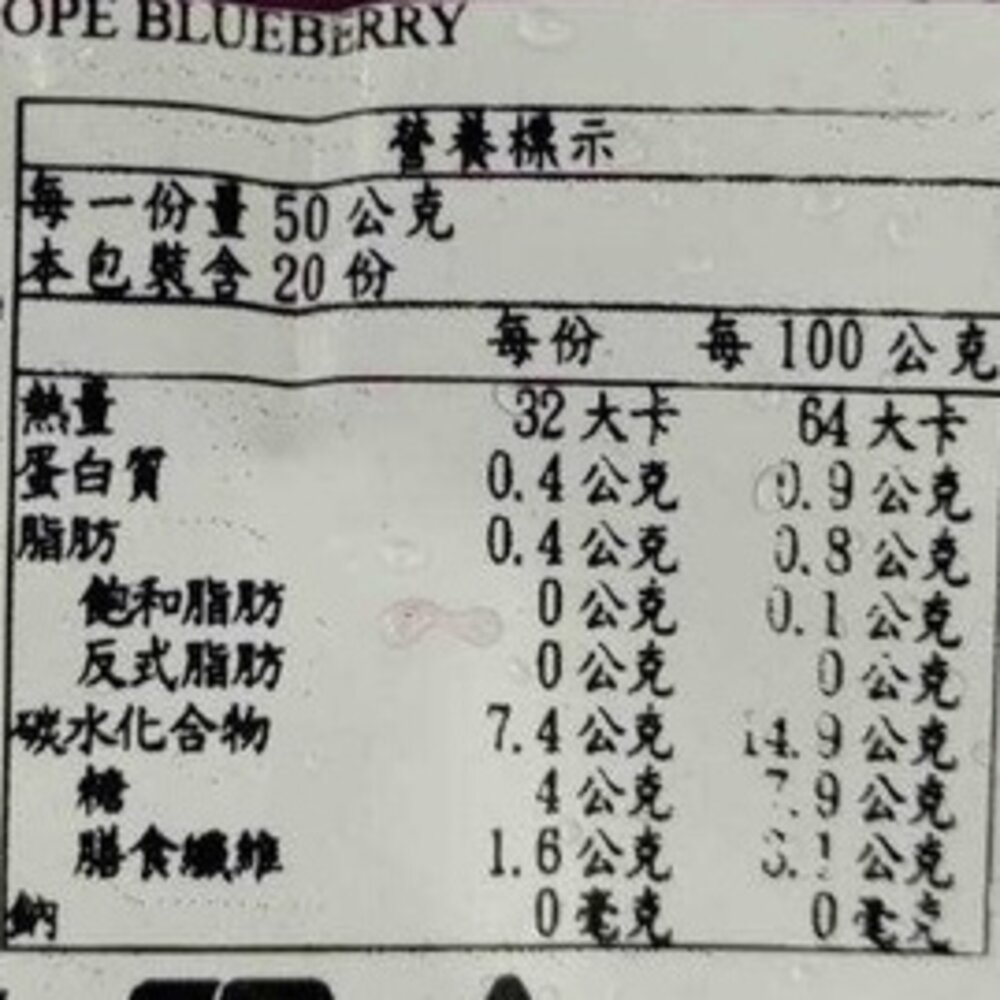 OPE BLUEBERRY
營養標示
每一份量 50 公克
本包裝含 20 份
每份 每 100 公克
熱量 32 大卡 64 大卡
蛋白質 0.4 公克 0.9 公克
脂肪 0.4 公克 0.8 公克
飽和脂肪 0 公克 0.1 公克
反式脂肪 0 公克 0 公克
碳水化合物 7.4 公克 14.9 公克
糖 4 公克 7.9 公克
膳食纖維 1.6 公克 3.1 公克
鈉 0 毫克 0 毫克